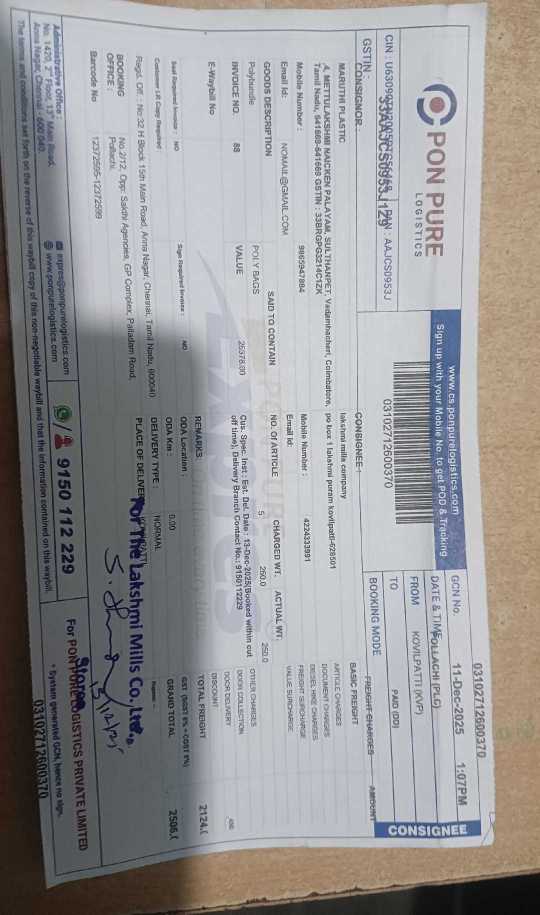 PON PURE
LOGISTICS
www.cs.ponpurelogistics.com
Sign up with your Mobile No. to get POD & Tracking
03102712600370
03102712600370
GCN No.
DATE & TIME
11-Dec-2025 1:07PM
FROM
POLLACHI (PLC)
TO
KOVILPATTI (KVP)
BOOKING MODE
PAID (DD)
CONSIGNEE
GSTIN :
33AAJCS0953J1Z9
PAN : AAJCS0953J
CONSIGNOR :
MARUTHI PLASTIC
4, METTULAKSHMI NAICKEN PALAYAM, SULTHANPET, Vadambacheri, Coimbatore,
Tamil Nadu, 641669-641669 GSTIN : 33BRGPG3214C1ZK
Mobile Number : 9865947884
Email Id: NOMAIL@GMAIL.COM
CONSIGNEE :
lakshmi mills company
po box 1 lakshmi puram kovilpatti-628501
Mobile Number : 4224333981
Email Id:
FREIGHT CHARGES AMOUNT
BASIC FREIGHT
ARTICLE CHARGES
DOCUMENT CHARGES
DIESEL HIKE CHARGES
FREIGHT SURCHARGE
VALUE SURCHARGE
OTHER CHARGES
DOOR COLLECTION
DOOR DELIVERY
DISCOUNT
TOTAL FREIGHT 2124.(
GRAND TOTAL 2506.(
GOODS DESCRIPTION SAID TO CONTAIN NO. OF ARTICLE CHARGED WT. ACTUAL WT.
Polybundle POLY BAGS 5 250.0 250.0
INVOICE NO. 88 VALUE 25378.00
Cus. Spec. Inst : Est. Del. Date : 13-Dec-2025(Booked within cut
off time), Delivery Branch Contact No.: 9150112229
E-Waybill No
REMARKS:
ODA Location :
ODA Km : 0.00
DELIVERY TYPE : NORMAL
PLACE OF DELIVERY
Seal Required Invoice : NO Sign Required Invoice : NO
Customer LR Copy Required :
Regd. Off : No:32 H Block 15th Main Road, Anna Nagar, Chennai, Tamil Nadu, 600040
BOOKING
OFFICE :
No.2/12, Opp: Sakthi Agencies, GP Complex, Palladam Road,
Pollachi.
Barcode No 12372595-12372599
For The Lakshmi Mills Co. Ltd.,
Stores
13/12/25
For PON PURE LOGISTICS PRIVATE LIMITED
* System generated GCN, hence no sign.
03102712600370
Administrative Office :
No. 1420, 2nd Floor, 13th Main Road,
Anna Nagar, Chennai - 600 040.
express@ponpurelogistics.com
www.ponpurelogistics.com
9150 112 229
The terms and conditions set forth on the reverse of this waybill copy of this non-negotiable waybill and that the information contained on this waybill.